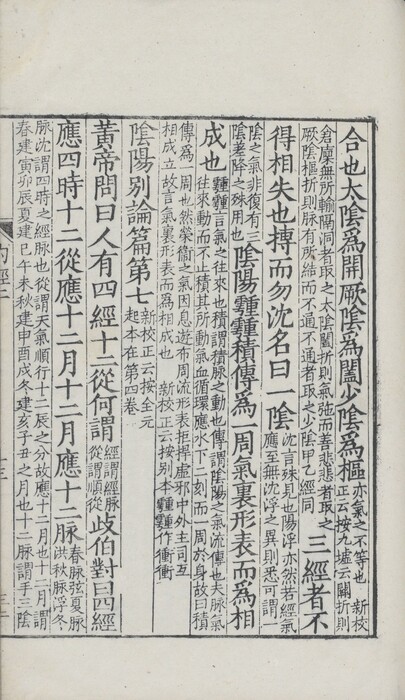 合也太陰爲開厥陰爲闔少陰爲樞亦氣之不等也　新校
正云按九墟云關折則
倉廩無所輸隔洞者取之太陰闔折則氣弛而善悲悲者取之
厥陰樞折則脉有所結而不通不通者取之少陰甲乙經同三經者不
得相失也搏而勿沈名曰一陰沈言殊見也陽浮亦然若經氣
應至無沈浮之異則悉可謂一
陰之氣非復有三
陰差降之殊用也陰陽䨥䨥積傳爲一周氣裏形表而爲相
成也䨥䨥言氣之往來也積謂積脉之動也傳謂陰陽之氣流傳也夫脉氣
往來動而不止積其所動氣血循環應水下二刻而一周於身故曰積
傳爲一周也然榮衛之氣因息遊布周流形表拒捍虛邪中外主司互
相成立故言氣裏形表而爲相成也　新校正云按别本䨥䨥作衝衝
陰陽别論篇第七新校正云按全元
起本在第四卷
黄帝問曰人有四經十二從何謂經謂經脉
從謂順從歧伯對曰四經
應四時十二從應十二月十二月應十二脉春脉弦夏脉
洪秋脉浮冬
脉沈謂四時之經脉也從謂天氣順行十二辰之分故應十二月也十二月謂
春建寅卯辰夏建巳午未秋建申酉戌冬建亥子丑之月也十二脉謂手三陰